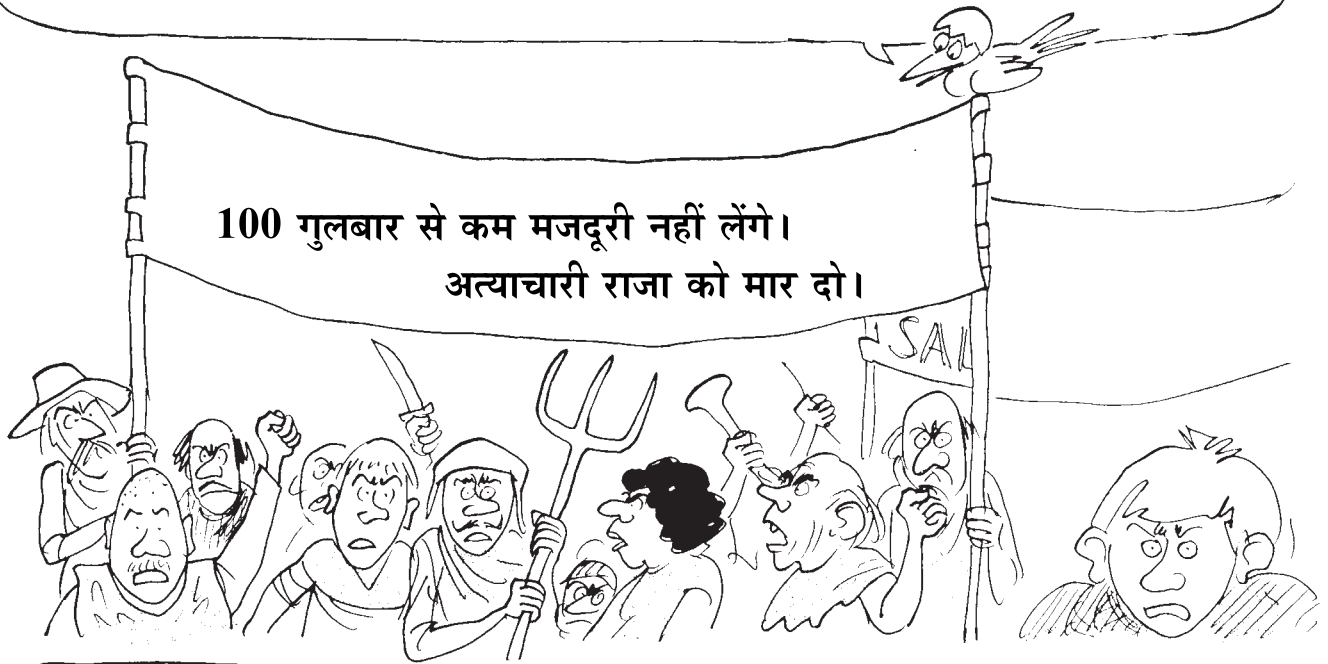 100 गुलबार से कम मजदूरी नहीं लेंगे।
अत्याचारी राजा को मार दो।
SAL